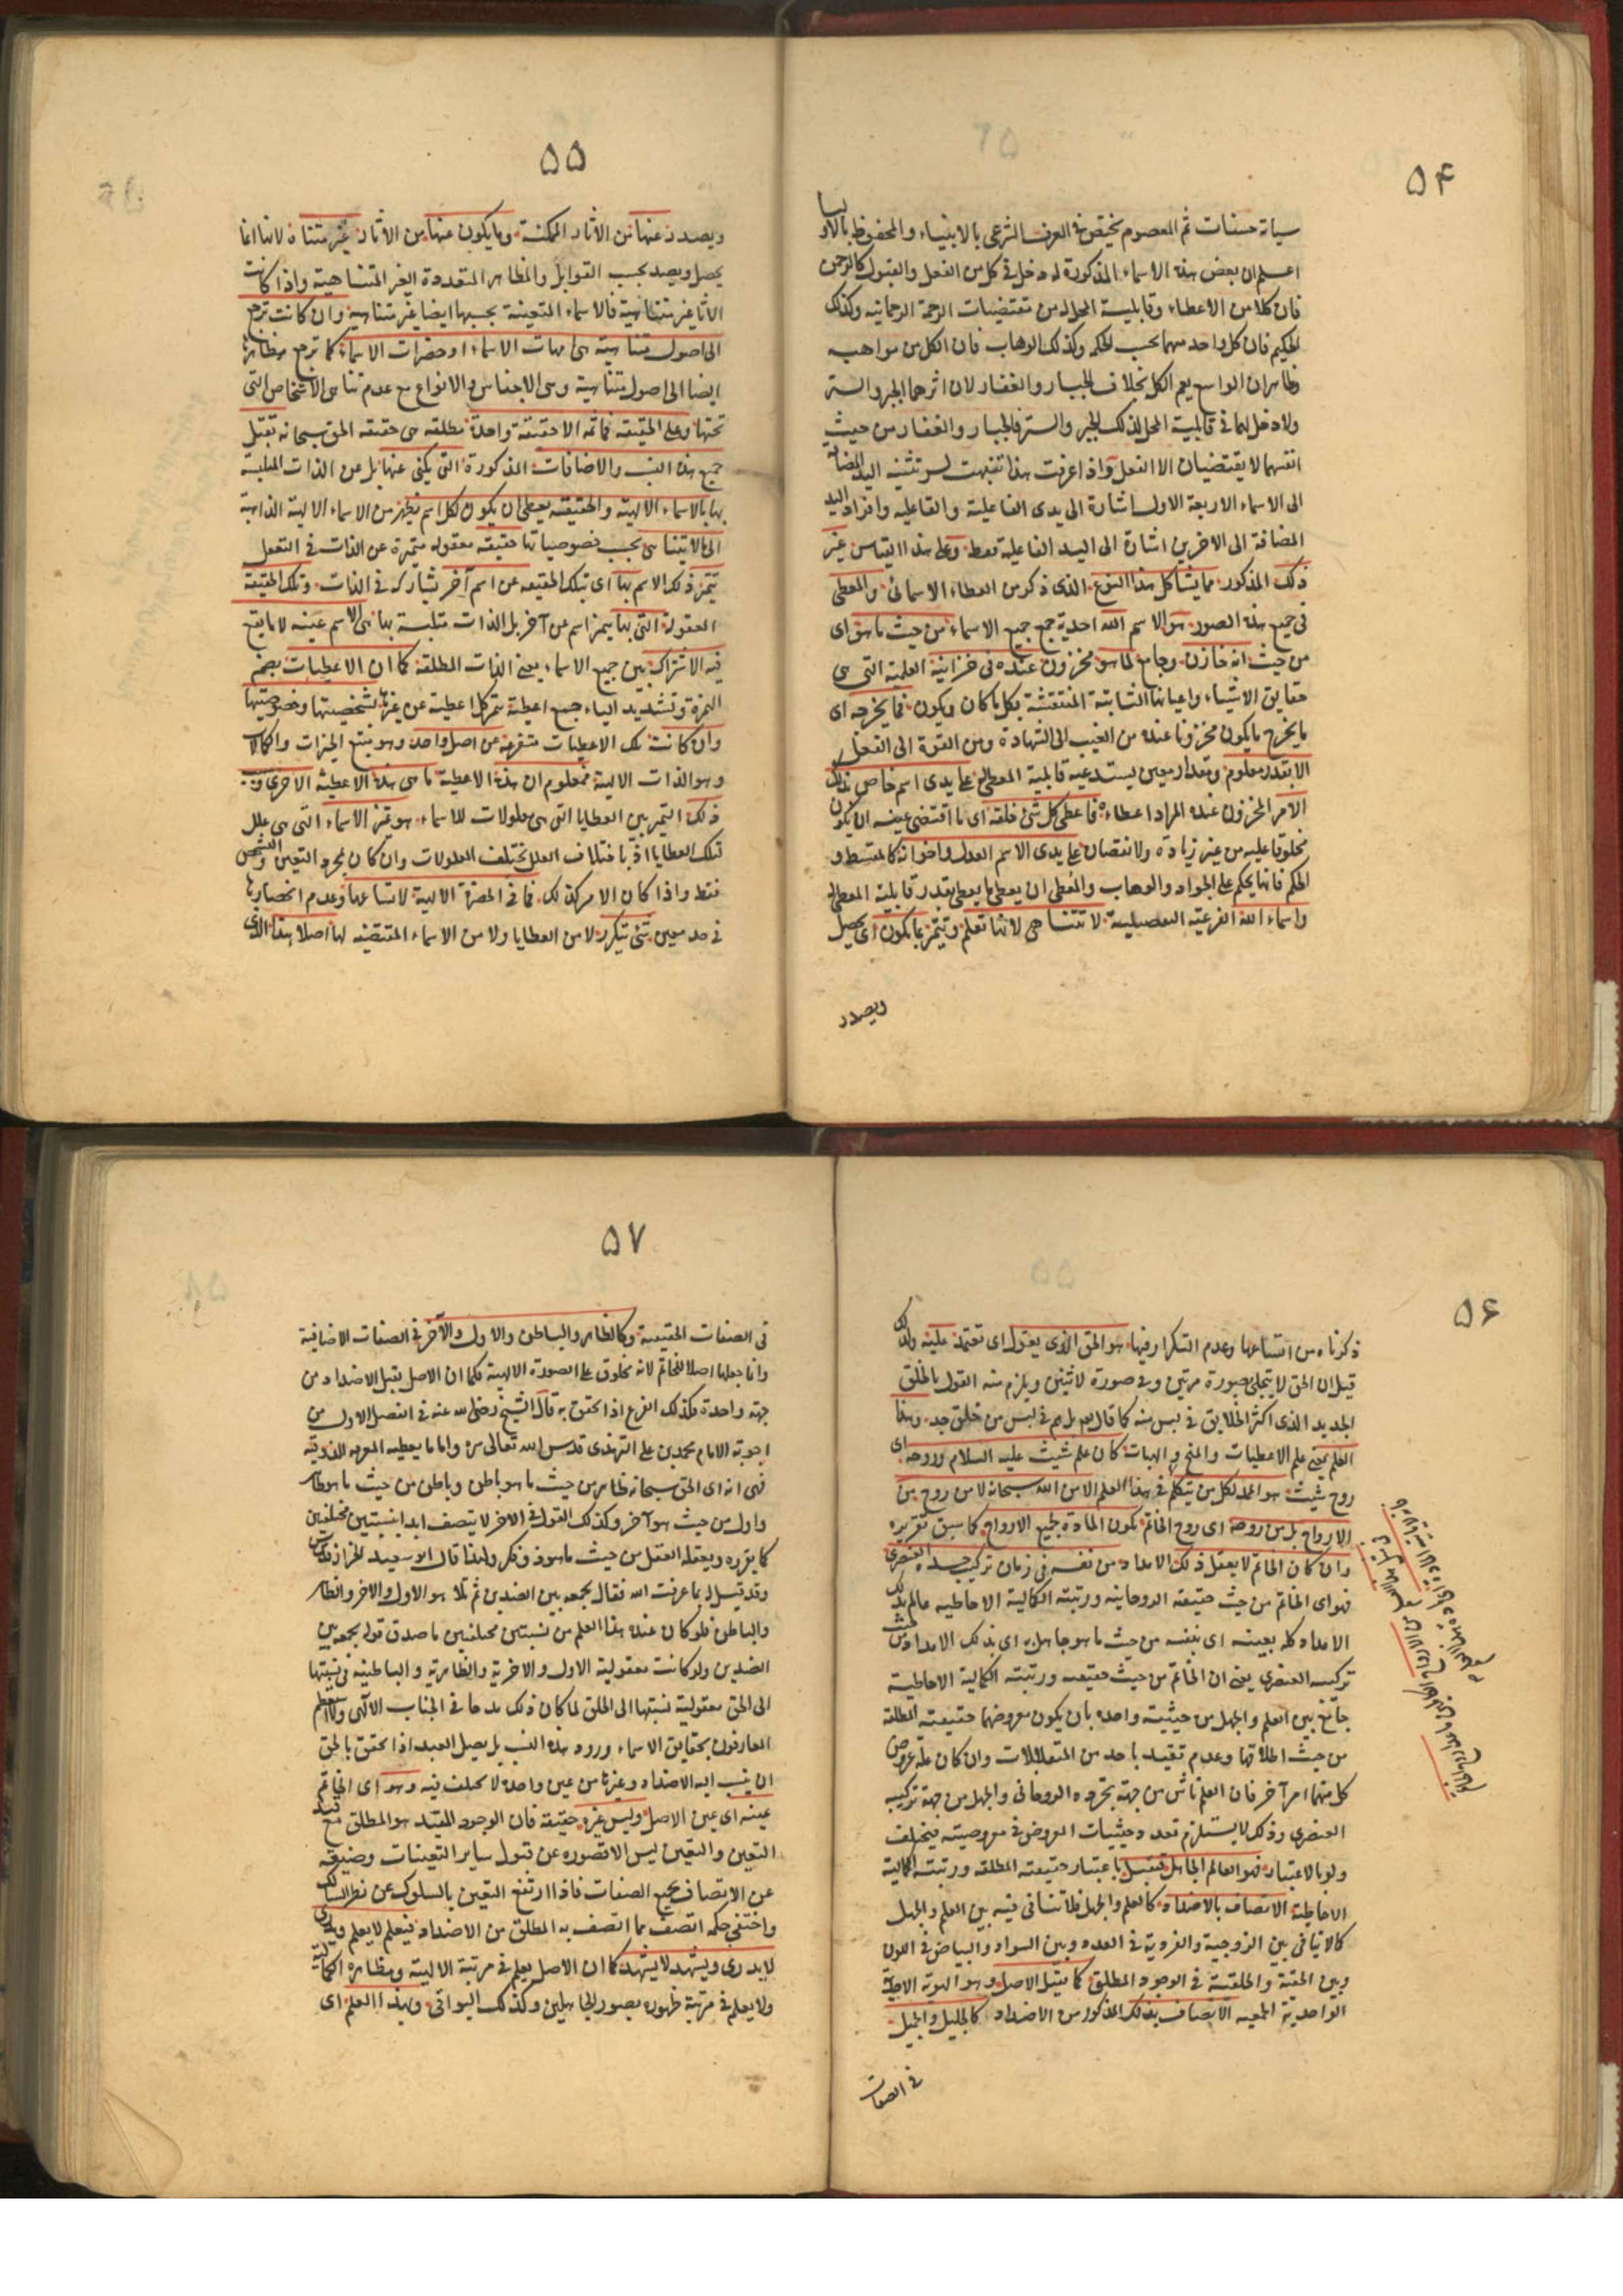 ٥٤
سيأته حسنات ثم المعصوم يختص فى العرف الشرعى بالانبياء والمحفوظ بالاوليا
اعلم ان بعض هذه الاسماء المذكورة له دخل فى كل من الفعل والقبول كالرحمن
فان كلا من الاعطاء وقابلية المحل له من مقتضيات الرحمة الرحمانيه وكذلك
الحكيم فان كل واحد منهما بحسب الحكمه وكذلك الوهاب فان الكل من مواهبه
وظاهر ان الواسع يعم الكل بخلاف الجبار والغفار لان اثرهما الجبر والستر
ولا دخل لهما فى قابلية المحل لذلك الجبر والستر فالجبار والغفار من حيث
انفسهما لا يقتضيان الا الفعل واذا عرفت هذا تنبهت لسر تثنيه اليد المضافة
الى الاسماء الاربعة الاول اشارة الى يدى الفاعلية والقابليه وافراد اليد
المضافة الى الاخرين اشارة الى اليد الفاعلية فقط وعلى هذا القياس غير
ذلك المذكور مما يشاكل هذا النوع الذى ذكر من العطاء الاسمائى والمعطى
فى جميع هذه الصور هو الاسم الله احدية جمع جميع الاسماء من حيث ما هو اى
من حيث انه خازن وجامع لما هو مخزون عنده فى خزانية العلمية التى هى
حقايق الاشياء واعيانها الثابتة المنتقشة بكل ما كان ويكون فما يخرجه اى
ما يخرج ما يكون مخزونا عنده من الغيب الى الشهادة ومن القوة الى الفعل
الا بقدر معلوم ومقدار معين يستدعيه قابلية المعطى له على يدى اسم خاص بذلك
الامر المخزون عنده المراد اعطاءه فاعطى كل شئ خلقه اى ما اقتضى عينه ان يكون
مخلوقا عليه من غير زيادة ولا نقصان على يدى الاسم العدل واخوانه كالمقسط و
الحكم فانها يحكم على الجواد والوهاب والمعطى ان يعطى ما يعطى بقدر قابلية المعطى له
واسماء الله الفرعية التفصيلية لا تتناهى لانها تعلم وتتميز بما يكون اى يحصل
ويصدر
٥٥
ويصدر عنها من الاثار الممكنة وما يكون عنها من الاثار غير متناه لانها انما
يحصل ويصدر بحسب القوابل والمظاهر المتعددة الغير المتناهية واذا كانت
الاثار غير متناهية فالاسماء المتعينة بحسبها ايضا غير متناهية وان كانت ترجع
الى اصول متناهية هى امهات الاسماء او حضرات الاسماء كما ترجع مظاهرها
ايضا الى اصول متناهية وهى الاجناس والانواع مع عدم تناهى الاشخاص التى
تحتها وعلى الحقيقة فما ثمه الا حقيقة واحدة مطلقه هى حقيقه الحق سبحانه تقبل
جميع هذه النسب والاضافات المذكورة التى يكنى عنها بل عن الذات الملتبسة
بها بالاسماء الالهية والحقيقه يعطى ان يكون لكل اسم يظهر من الاسماء الالهية الذاهبة
الى ما لا يتناهى بحسب خصوصياتها حقيقه معقوله متميزة عن الذات فى التعقل
يتميز ذلك الاسم بها اى بتلك الحقيقه عن اسم آخر يشاركه فى الذات وتلك الحقيقة
المعقولة التى بها يتميز اسم عن آخر بل الذات متلبسة بها هى الاسم عينه لا ما يقع
فيه الاشتراك بين جميع الاسماء يعنى الذات المطلقة كما ان الاعطيات بضم
الهمزة وتشديد الياء جمع اعطية تتميز كل اعطية عن غيرها بشخصيتها وخصوصيتها
وان كانت تلك الاعطيات متفرعة من اصل واحد وهو منبع الخيرات والكمالات
وهو الذات الالهية فمعلوم ان هذه الاعطية ما هى هذه الاعطية الاخرى وسبب
ذلك التميز بين العطايا التى هى معلولات للاسماء هو تميز الاسماء التى هى علل
تلك العطايا اذ باختلاف العلل تختلف المعلولات وان كان بمجرد التعين والتشخص
فقط واذا كان الامر كذلك فما فى الحضرة الالهية لاتساعها وعدم انحصارها
فى حد معين شئ يتكرر لا من العطايا ولا من الاسماء المقتضيه لها اصلا هذا الذى
٥٦
ذكرناه من اتساعها وعدم التكرار فيها هو الحق الذى يعول اى تعتمد عليه ولذلك
قيل ان الحق لا يتجلى بصورة مرتين وفى صورة لاثنين ويلزم منه القول بالخلق
الجديد الذى اكثر الخلايق فى لبس منه كما قال تعالى بل هم فى لبس من خلق جديد وهذا
العلم يعنى علم الاعطيات والمنح والهبات كان علم شيث عليه السلام وروحه اى
روح شيث هو الممد لكل من يتكلم فى هذا العلم الا من الله سبحانه لا من روح من
الارواح بل من روحه اى روح الخاتم تكون المادة لجميع الارواح كما سبق تقريره
وان كان الخاتم لا يعقل ذلك الامداد من نفسه فى زمان تركيب جسده العنصرى
فهو اى الخاتم من حيث حقيقته الروحانيه ورتبته الكمالية الاحاطيه عالم بذلك
الامداد كله بعينه اى بنفسه من حيث ما هو جاهل به اى بذلك الامداد من حيث
تركيبه العنصرى يعنى ان الخاتم من حيث حقيقته ورتبته الكمالية الاحاطية
جامع بين العلم والجهل من حيثية واحده بان يكون معروضهما حقيقته المطلقة
من حيث اطلاقها وعدم تقيد باحد من المتقابلات وان كان علة عروض
كل منهما امر آخر فان العلم ناش من جهة تجرده الروحانى والجهل من جهة تركيبه
العنصرى وذلك لا يستلزم تعدد حيثيات المعروض فى معروضيته فيختلف
ولو بالاعتبار فهو العالم الجاهل فيقبل باعتبار حقيقته المطلقه ورتبته الكمالية
الاحاطية الاتصاف بالاضداد كالعلم والجهل فلا تنافى فيه بين العلم والجهل
كالا تنافى بين الزوجية والفردية فى العدد وبين السواد والبياض فى اللون
وبين الحقية والخلقية فى الوجود المطلق كما يقبل الاصل وهو الهوية الاحدية
الواحدية الجمعيه الاتصاف بذلك المذكور من الاضداد كالجليل والجميل
فى الصفات
٥٧
فى الصفات الحقيقية وكالظاهر والباطن والاول والآخر فى الصفات الاضافية
وانما جعلها اصلا للخاتم لانه مخلوق على الصورة الالهية فكما ان الاصل يقبل الاضداد من
جهة واحدة فكذلك الفرع اذا تحقق به قال الشيخ رضى الله عنه فى الفصل الاول من
اجوبة الامام محمد بن على الترمذى قدس الله تعالى سره واما ما يعطيه المعرفه الذوقيه
فهى انه اى الحق سبحانه ظاهر من حيث ما هو باطن وباطن من حيث ما هو ظاهر
واول من حيث هو آخر وكذلك القول فى الاخر لا يتصف ابدا بنسبتين مختلفتين
كما يقرره ويعقله العقل من حيث ما هو ذو فكر ولهذا قال ابو سعيد الخراز قدس سره
وقد قيل له بما عرفت الله فقال بجمعه بين الضدين ثم تلا هو الاول والاخر والظاهر
والباطن فلو كان عنده هذا العلم من نسبتين مختلفتين ما صدق قوله بجمعه بين
الضدين ولو كانت معقولية الاول والاخرية والظاهرية والباطنية فى نسبتها
الى الحق معقولية نسبتها الى الخلق لما كان ذلك مدحا فى الجناب الالهى ولا استعظم
العارفون بحقايق الاسماء ورود هذه النسب بل يصل العبد اذا تحقق بالحق
ان ينسب اليه الاضداد وغيرها من عين واحدة لا تختلف فيه وهو اى الخاتم
عينه اى عين الاصل وليس غيره حقيقة فان الوجود المقيد هو المطلق مع قيد
التعين والتعين ليس الا قصوره عن قبول ساير التعينات وضيقه
عن الاتصاف بجميع الصفات فاذا ارتفع التعين بالسلوك عن نظر السالك
واختفى حكمه اتصف بما اتصف به المطلق من الاضداد فيعلم لا يعلم ويدرى
لا يدرى ويشهد لا يشهد كما ان الاصل يعلم فى مرتبة الالهية ومظاهره الكمالية
ولا يعلم فى مرتبة ظهوره بصور الجاهلين وكذلك البواقى وبهذا العلم اى